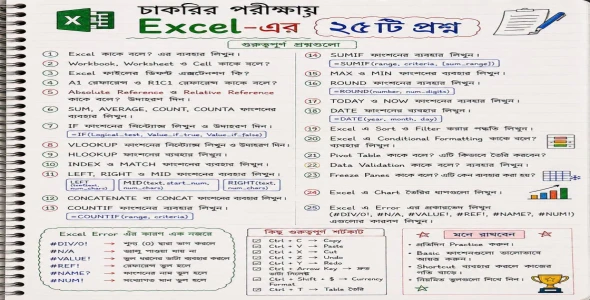 চাকরির পরীক্ষায়
Excel-এর ২৫টি প্রশ্ন
গুরুত্বপূর্ণ প্রশ্নগুলো
1 Excel কাকে বলে? এর ব্যবহার লিখুন।
2 Workbook, Worksheet ও Cell কাকে বলে?
3 Excel ফাইলের ডিফল্ট এক্সটেনশন কি?
4 A1 রেফারেন্স ও R1C1 রেফারেন্স কাকে বলে?
5 Absolute Reference ও Relative Reference
কাকে বলে? উদাহরণ দিন।
6 SUM, AVERAGE, COUNT, COUNTA ফাংশনের
ব্যবহার লিখুন।
7 IF ফাংশনের সিনট্যাক্স লিখুন ও উদাহরণ দিন।
=IF(Logical_test, Value_if_true, Value_if_false)
8 VLOOKUP ফাংশনের সিনট্যাক্স লিখুন ও উদাহরণ দিন।
9 HLOOKUP ফাংশনের ব্যবহার লিখুন।
10 INDEX ও MATCH ফাংশনের ব্যবহার লিখুন।
11 LEFT, RIGHT ও MID ফাংশনের ব্যবহার লিখুন।
LEFT
num_chars)
MID(text,start_num,
num_chars)
RIGHT(text,
num_chars)
12 CONCATENATE বা CONCAT ফাংশনের ব্যবহার লিখুন।
13 COUNTIF ফাংশনের ব্যবহার লিখুন।
=COUNTIF(range, criteria)
14 SUMIF ফাংশনের ব্যবহার লিখুন।
=SUMIF(range, criteria, [sum_range])
15 MAX ও MIN ফাংশনের ব্যবহার লিখুন।
16 ROUND ফাংশনের ব্যবহার লিখুন।
=ROUND(number, num-digits)
17 TODAY ও NOW ফাংশনের ব্যবহার লিখুন।
18 DATE ফাংশনের ব্যবহার লিখুন।
=DATE(year, month, day)
19 Excel এ Sort ও Filter করার পদ্ধতি লিখুন।
20 Excel এ Conditional Formatting কাকে বলে?
ব্যবহার লিখুন।
21 Pivot Table কাকে বলে? এটি কিভাবে তৈরি করবেন?
22 Data Validation কাকে বলে? ব্যবহার লিখুন।
23 Freeze Panes কাকে বলে? এটি কেন ব্যবহার করা হয়?
24 Excel এ Chart তৈরির ধাপগুলো লিখুন।
25 Excel এ Error এর প্রকারভেদ লিখুন
(#DIV/0!, #N/A, #VALUE!, #REF!, #NAME?, #NUM!)
এগুলোর কারণ লিখুন।
Excel Error এর কারণ এক নজরে
#DIV/0! → শূন্য (0) দ্বারা ভাগ করলে
#N/A → ভ্যালু পাওয়া যায় না
#VALUE! → ভুল ধরনের ডাটা ব্যবহার করলে
#REF! → রেফারেন্স ভুল হলে
#NAME? → ফাংশনের নাম ভুল হলে
#NUM! → সংখ্যাগত মান ভুল হলে
কিছু গুরুত্বপূর্ণ শর্টকাট
Ctrl + C → Copy
Ctrl + V → Paste
Ctrl + X → Cut
Ctrl + Z → Undo
Ctrl + Y → Redo
Ctrl + Arrow Key → দ্রুত
Ctrl + Shift + $ → Currency
Format
Ctrl + T → Table তৈরি
মনে রাখবেন
প্রতিদিন Practice করুন।
Basic ফাংশনগুলো ভালোভাবে
আয়ত্ত করুন।
Shortcut ব্যবহার করলে কাজের
গতি বাড়ে।
নিয়মিত ভুলগুলো শিখে নিন।